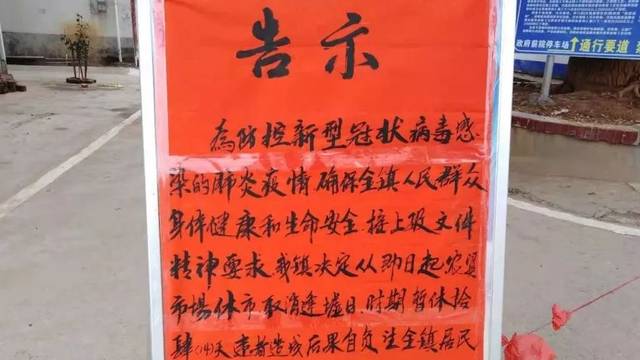 告示
為防控新型冠状病毒感
染的肺炎疫情确保全镇人民群众
身体健康和生命安全.接上级文件
精神要求.我镇决定从即日起农贸
市場休市取消逢墟日.时期暂休拾
肆(14)天.违者造成后果自负.全镇居民
政府前院停车场↑通行要道